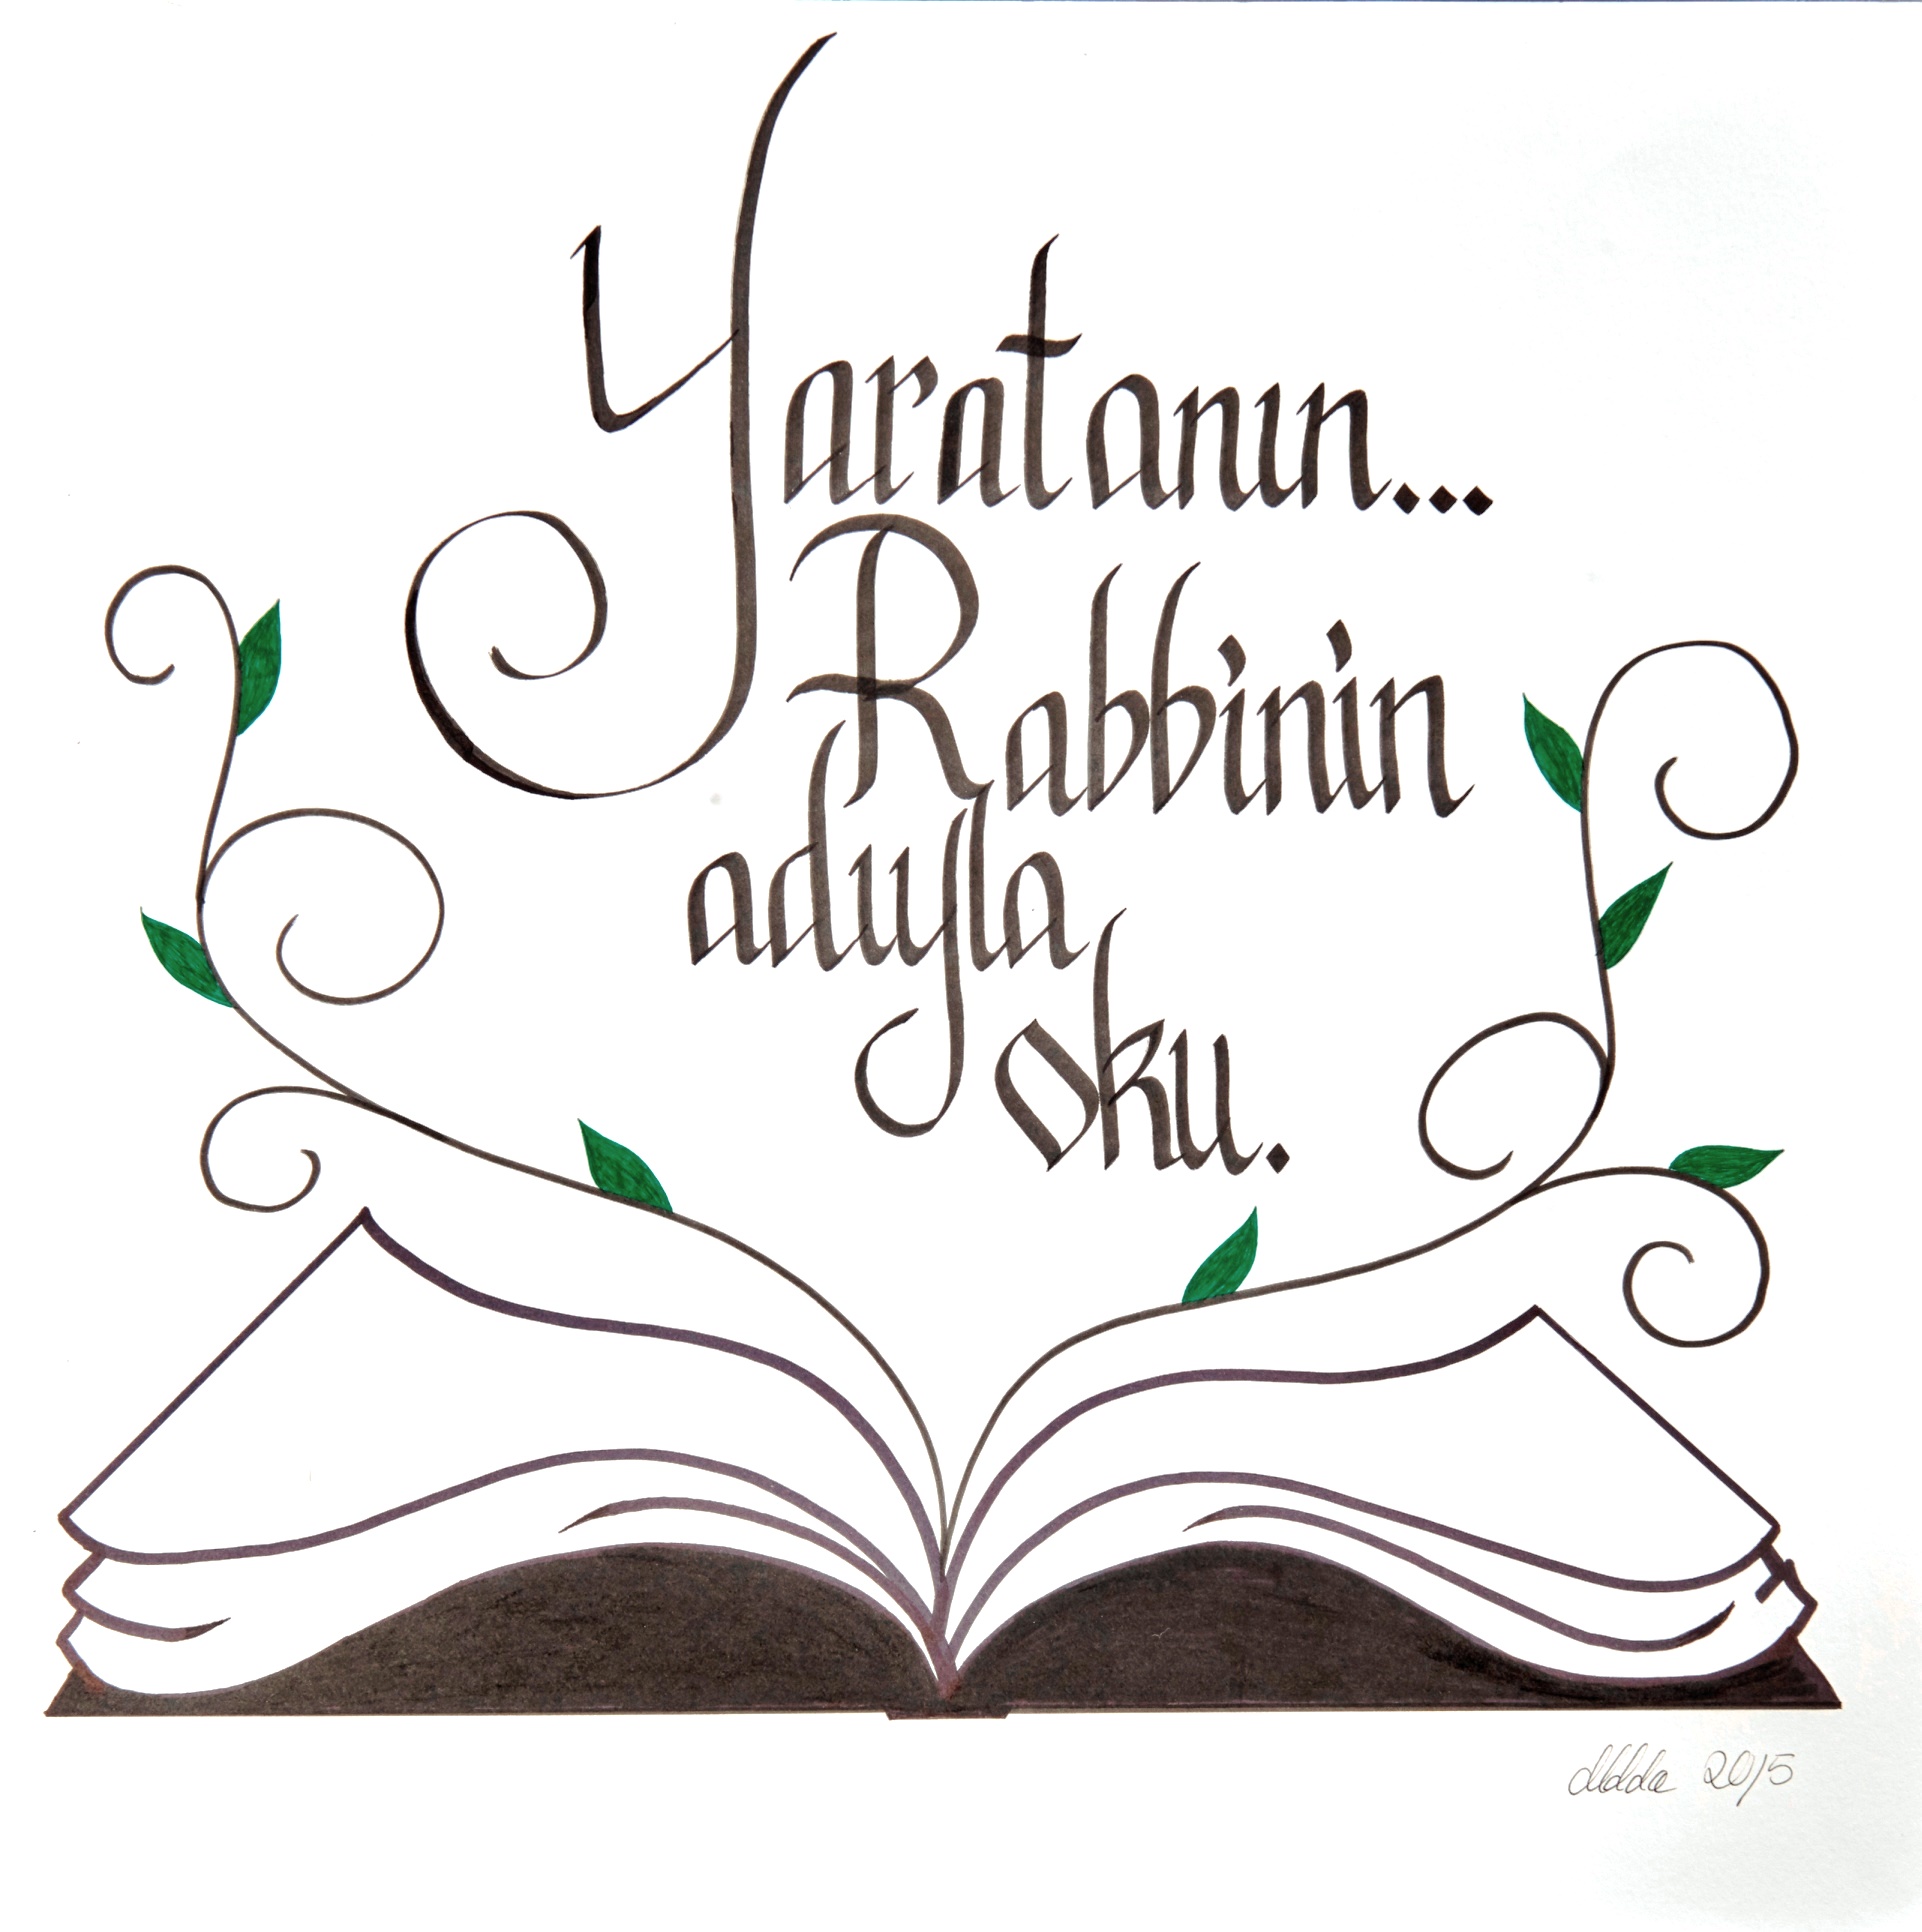 Yaratanın...
Rabbinin
adıyla
oku.
2015